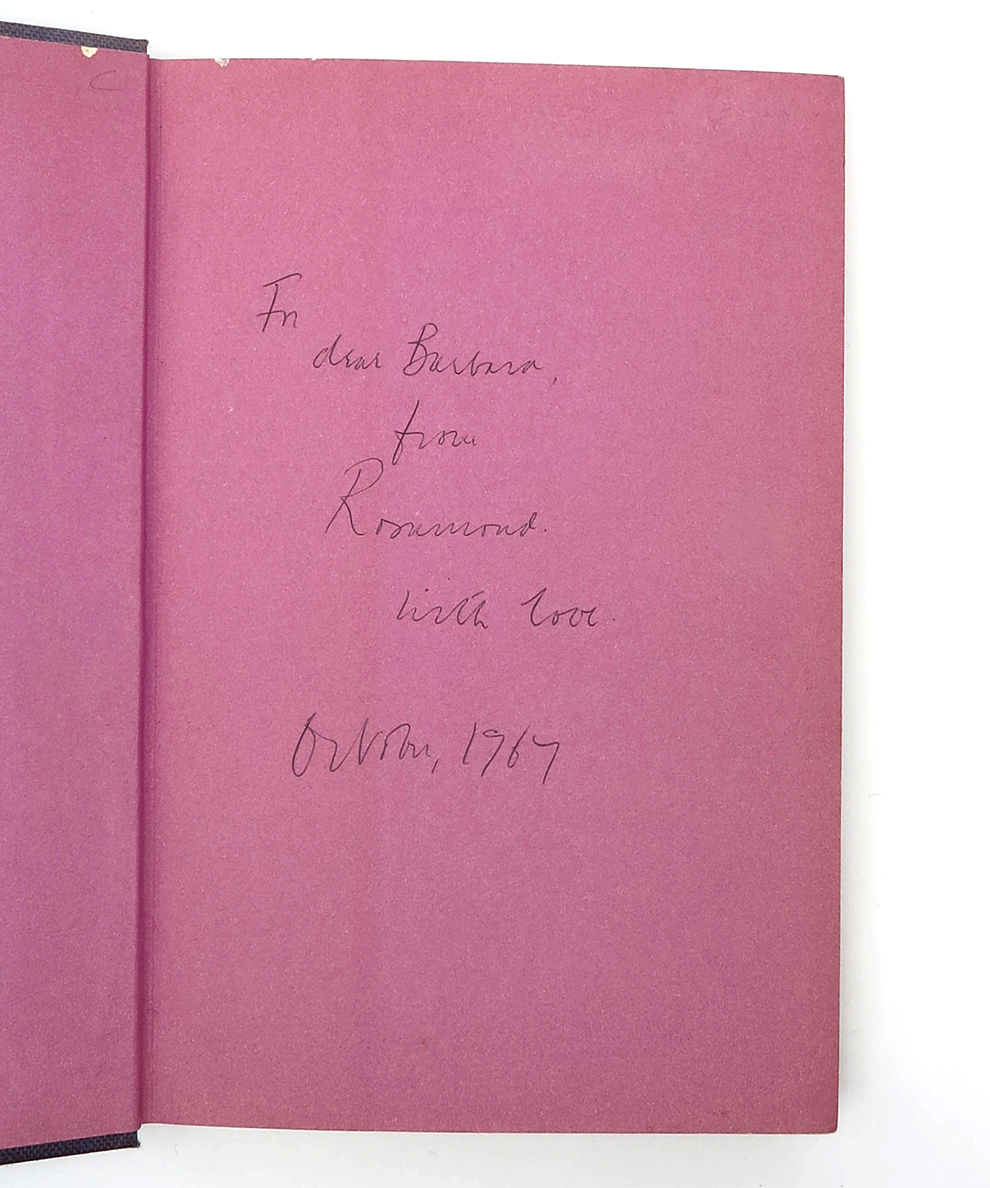 For
dear Barbara,
from
Rosamond.
with love.
October, 1967